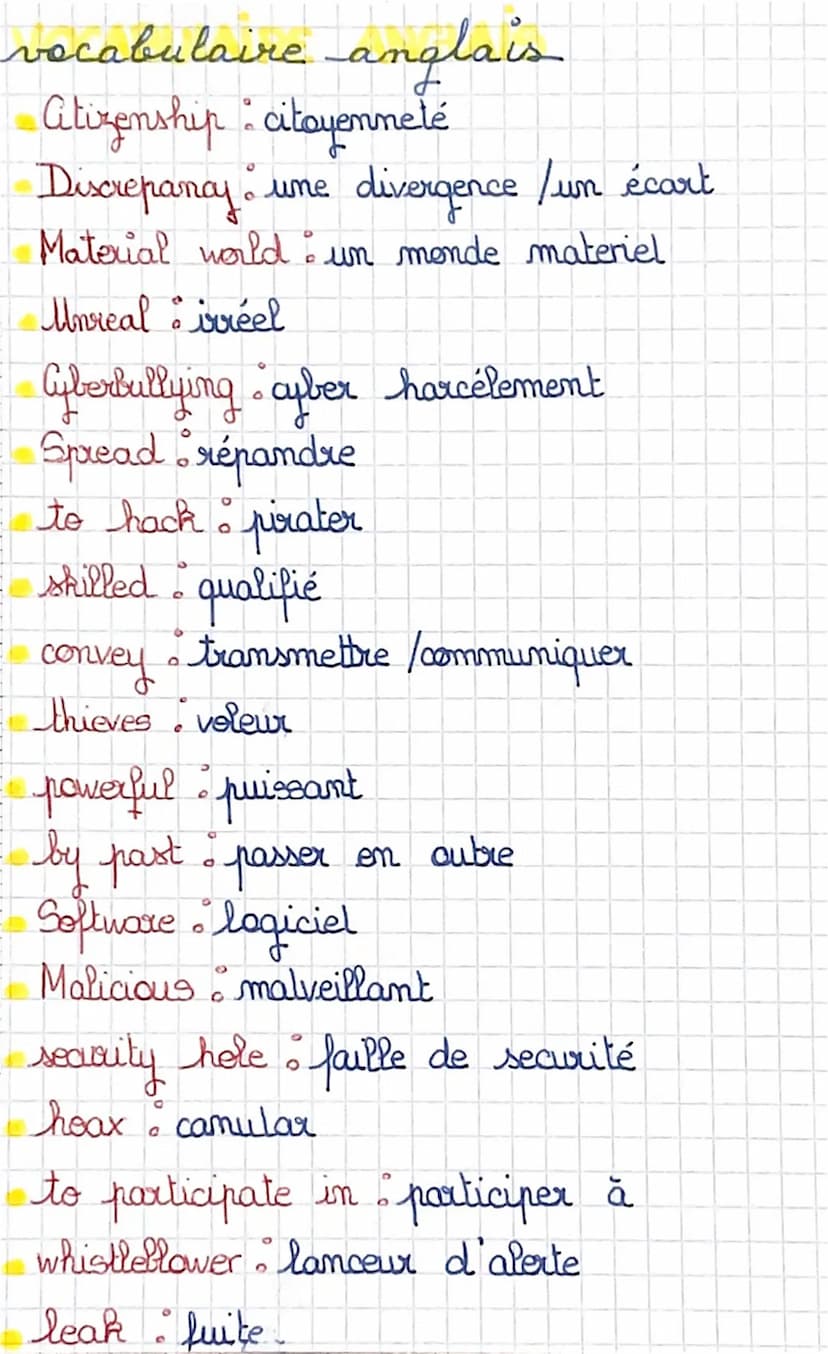 vocabulaire anglais
Citizenship : citoyenneté
Discrepancy : une divergence / un écart
Material world : un monde materiel
Unreal : irréel
Cyberbullying : cyber harcélement
Spread : répandre
to hack : pirater
skilled : qualifié
convey : transmettre /communiquer
thieves : voleur
powerful : puissant
by past : passer en outre
Software : logiciel
Malicious : malveillant
security hole : faille de securité
hoax : canular
to participate in : participer à
whistleblower : lanceur d'alerte
leak : fuite.